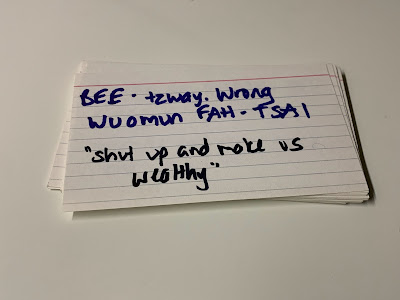 BEE · tzway. Wrong
Wuomun FAH · TSAI
"shut up and make us
wealthy"